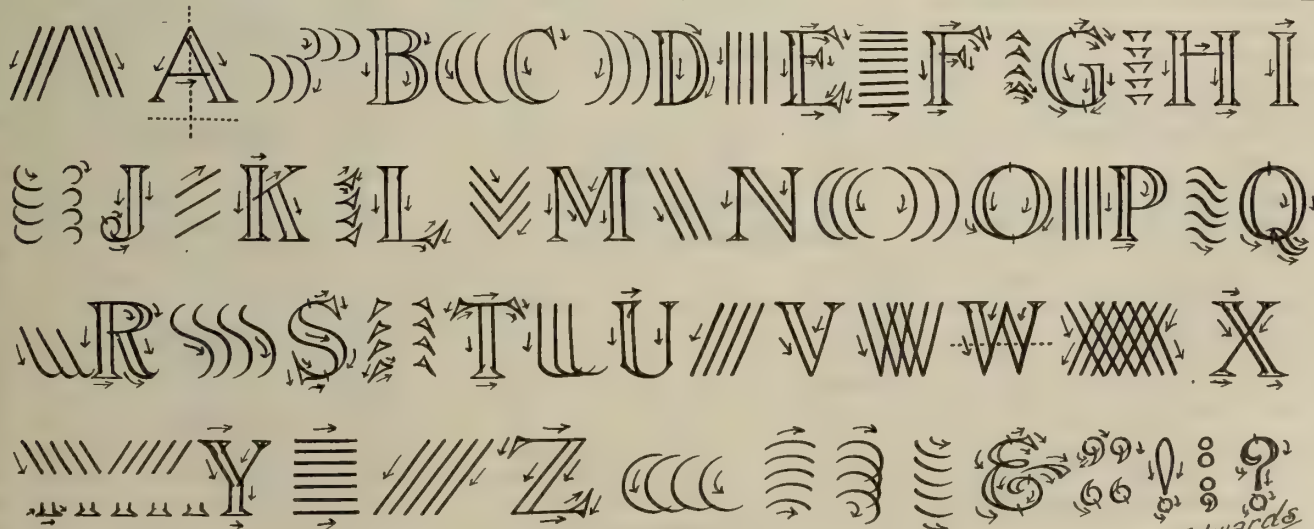 A B C D E F G H I
J K L M N O P Q
R S T U V W X
Y Z & ! : ?